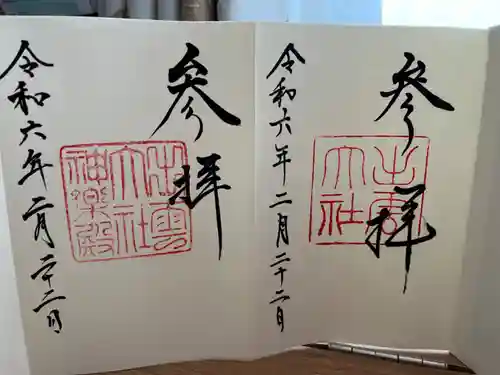 参拝
出雲大社
令和六年二月二十二日
参拝
出雲
大社
神楽殿
令和六年二月二十二日